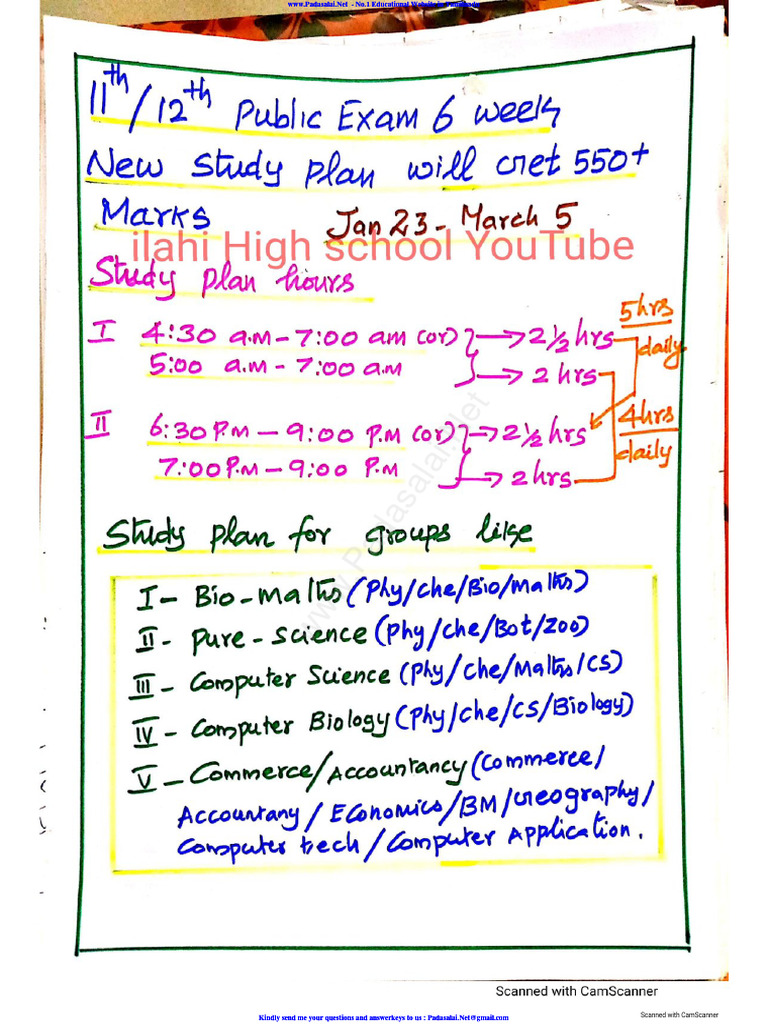 www.Padasalai.Net - No.1 Educational Website in Tamilnadu
11th/12th Public Exam 6 week
New study plan will Get 550+
Marks Jan 23 - March 5
ilahi High school YouTube
Study plan hours
I 4:30 a.m - 7:00 am (or) → 2 1/2 hrs
5:00 a.m - 7:00 a.m → 2 hrs
5hrs
daily
II 6:30 P.m - 9:00 P.M (or) → 2 1/2 hrs
7:00 P.m - 9:00 P.M → 2 hrs
4hrs
daily
www.Padasalai.Net
Study plan for groups like
I - Bio-maths (Phy/che/Bio/maths)
II - Pure-science (Phy/che/Bot/Zoo)
III - Computer Science (Phy/che/Maths/CS)
IV - Computer Biology (Phy/che/CS/Biology)
V - Commerce/Accountancy (Commerce/
Accountany/Economics/BM/Geography/
Computer tech/Computer Application.
Scanned with CamScanner
Scanned with CamScanner
Kindly send me your questions and answerkeys to us : Padasalai.Net@gmail.com